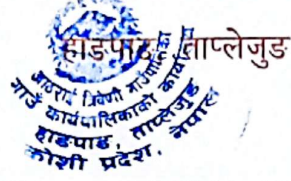 हाङपाङ, ताप्लेजुङ
आठराई त्रिवेणी गाउँपालिका
गाउँ कार्यपालिकाको कार्यालय
हाङपाङ, ताप्लेजुङ
कोशी प्रदेश, नेपाल